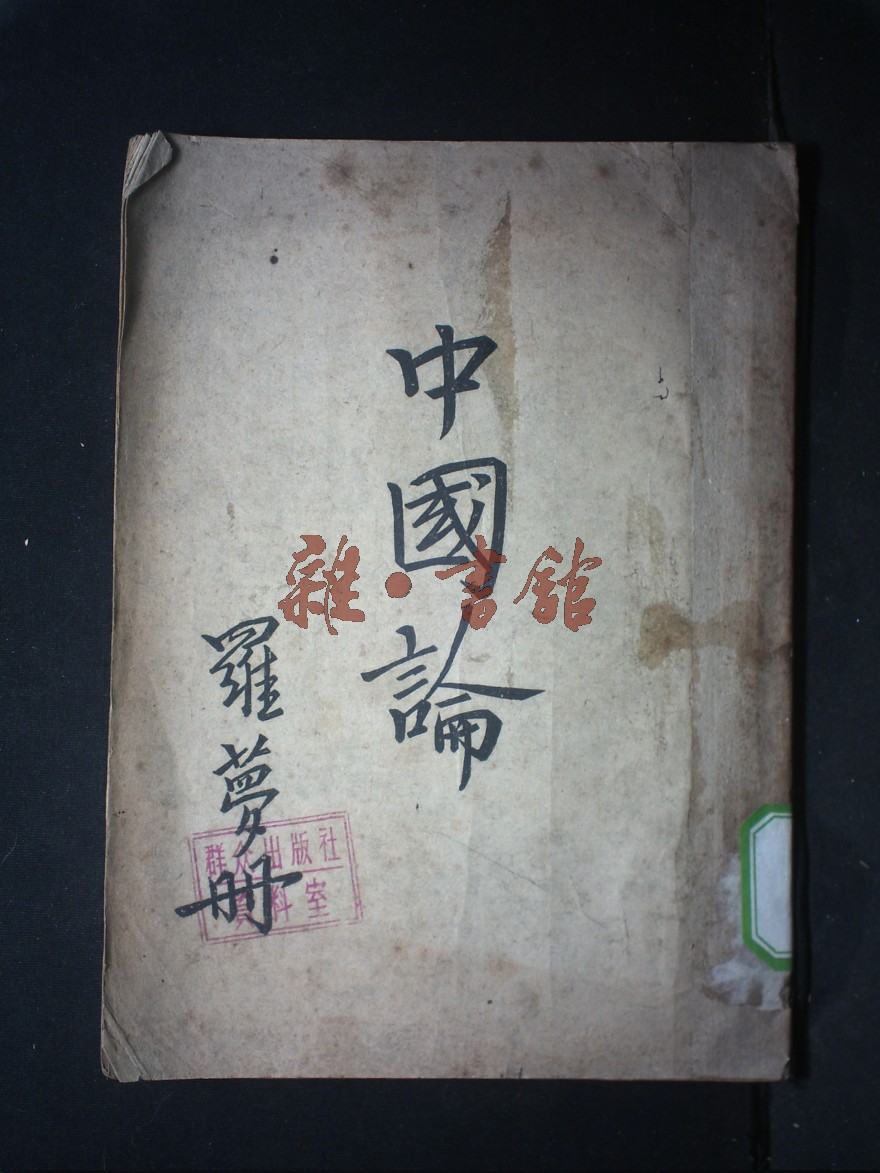 中國論
羅夢冊
雜·書館
群众出版社
資料室